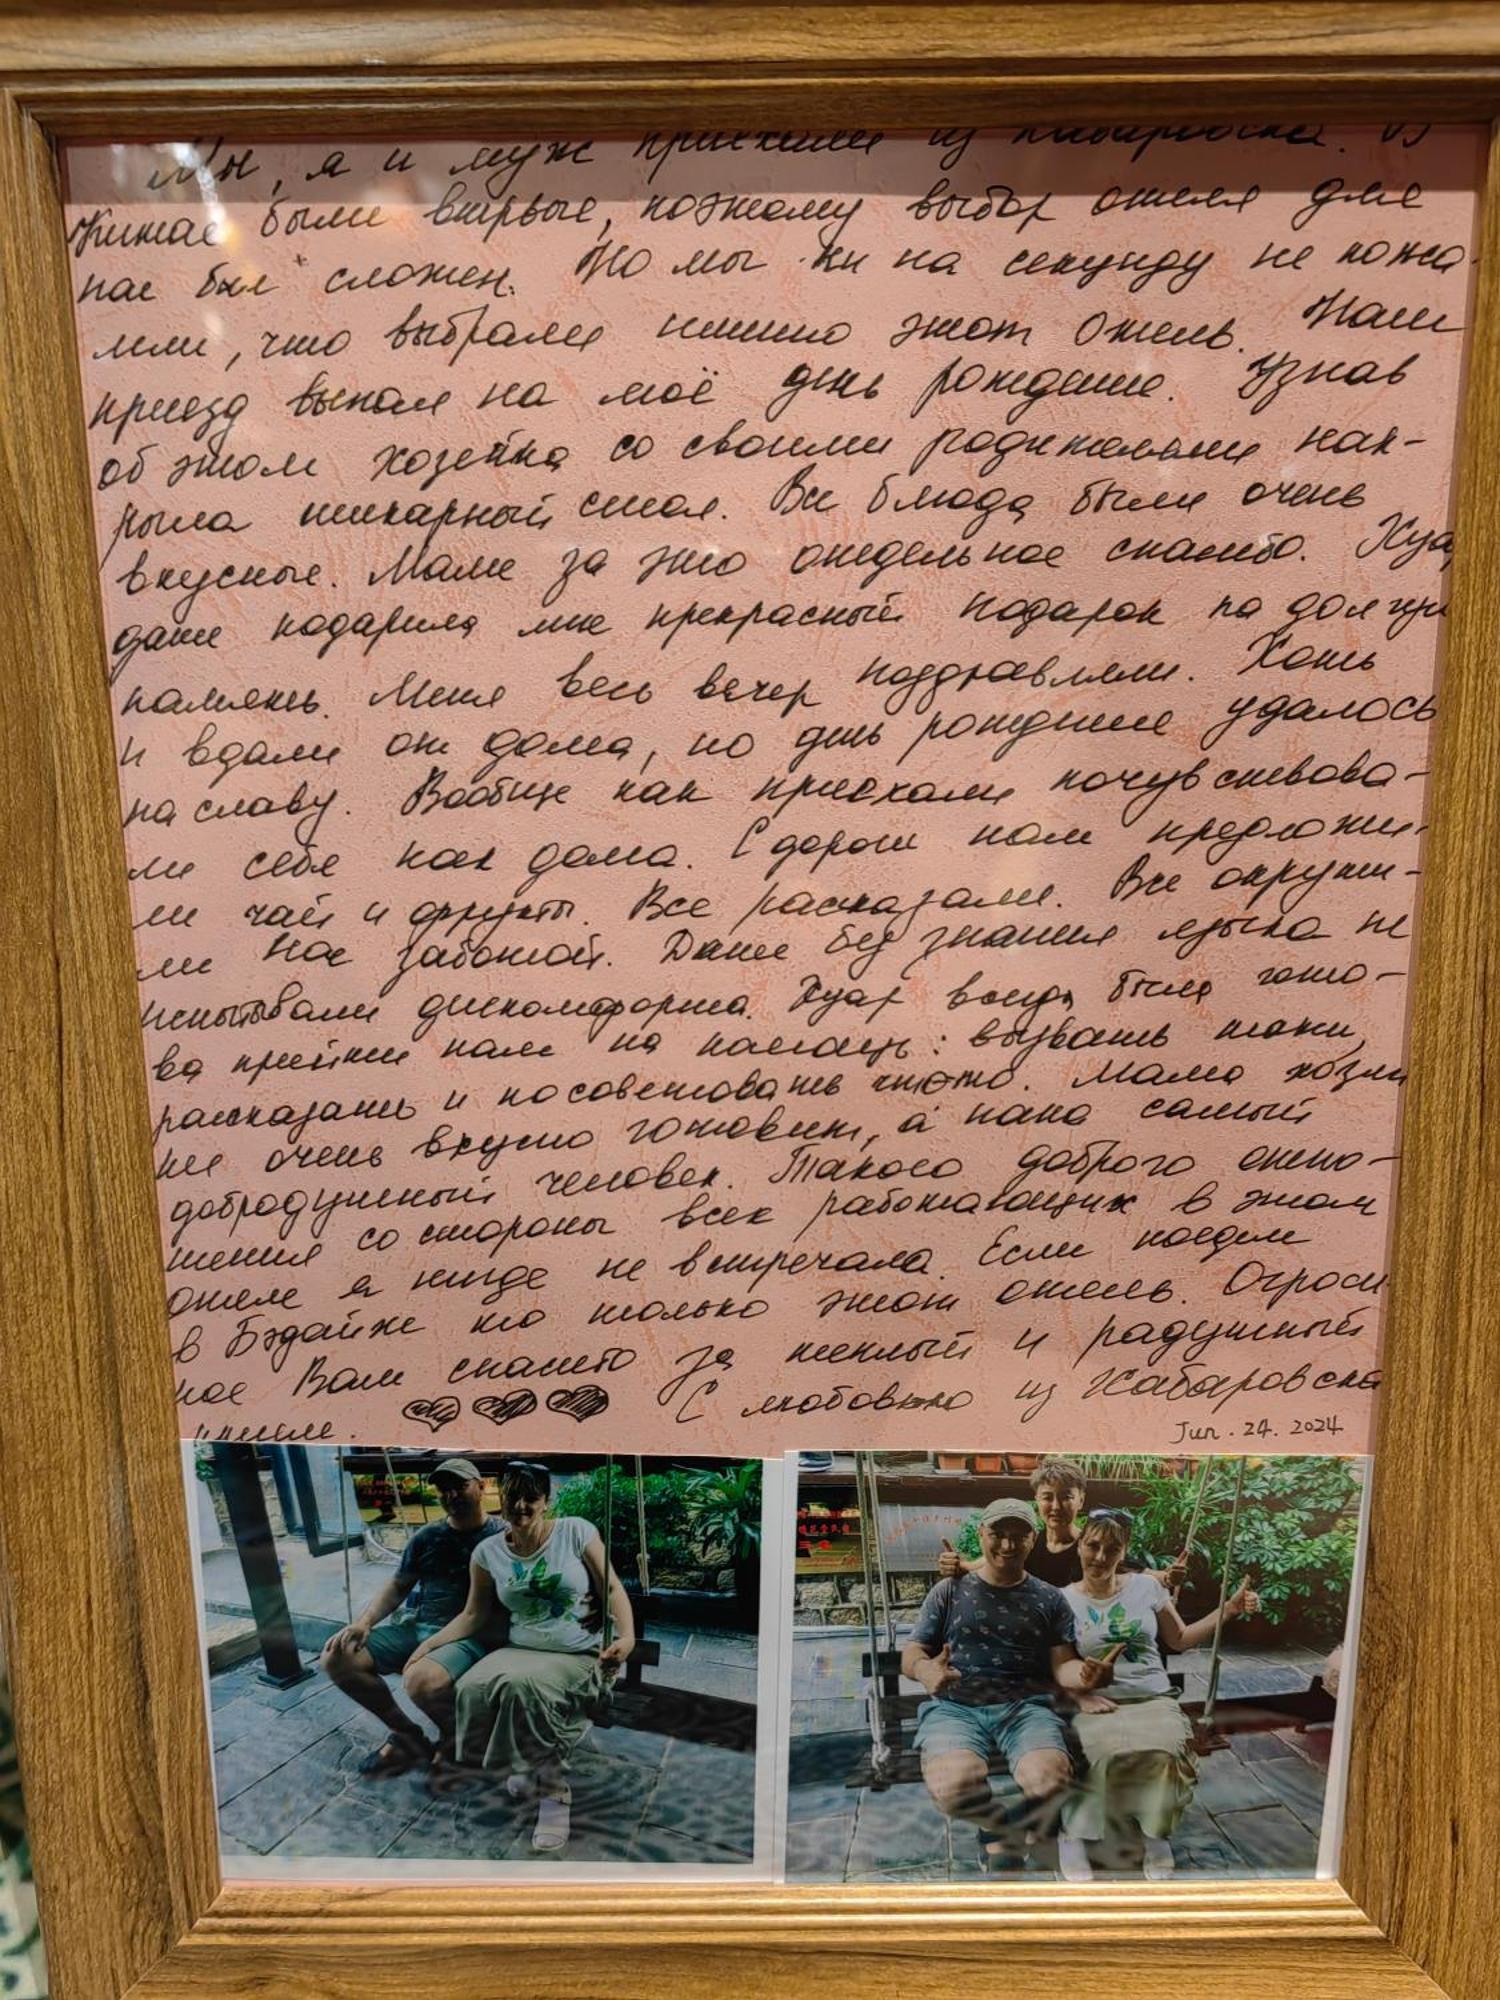 Мы, я и муж приехали из Хабаровска. В
Китае были впервые, поэтому выбор отеля для
нас был сложен. Но мы ни на секунду не пожа-
лели, что выбрали именно этот Отель. Наш
приезд выпал на моё день рождение. Узнав
об этом хозейка со своими родителями нак-
рыла шикарный стол. Все блюда были очень
вкусные. Маме за это отдельное спасибо. Хуа,
даже подарила мне прекрасный подарок на долгую
память. Меня весь вечер поздравляли. Хоть
и вдали от дома, но день рождение удалось
на славу. Вообще как приехали почувствова-
ли себя как дома. С дороги нам предложи-
ли чай и фрукты. Все рассказали. Все окружи-
ли нас заботой. Даже без знания языка не
испытывали дискомфорта. всегда была гото-
ва прийти нам на помощь: вызвать такси,
рассказать и посоветовать что-то. Мама хозяй
ке очень вкусно готовит, а папа самый
добродушный человек. Такого доброго отно-
шения со стороны всех работающих в этом
отеле я нигде не встречала. Если поедем
в Бэдайхе то только этот отель. Огром
ное Вам спасибо за теплый и радушный
прием. С любовью из Хабаровска
Jun. 24. 2024